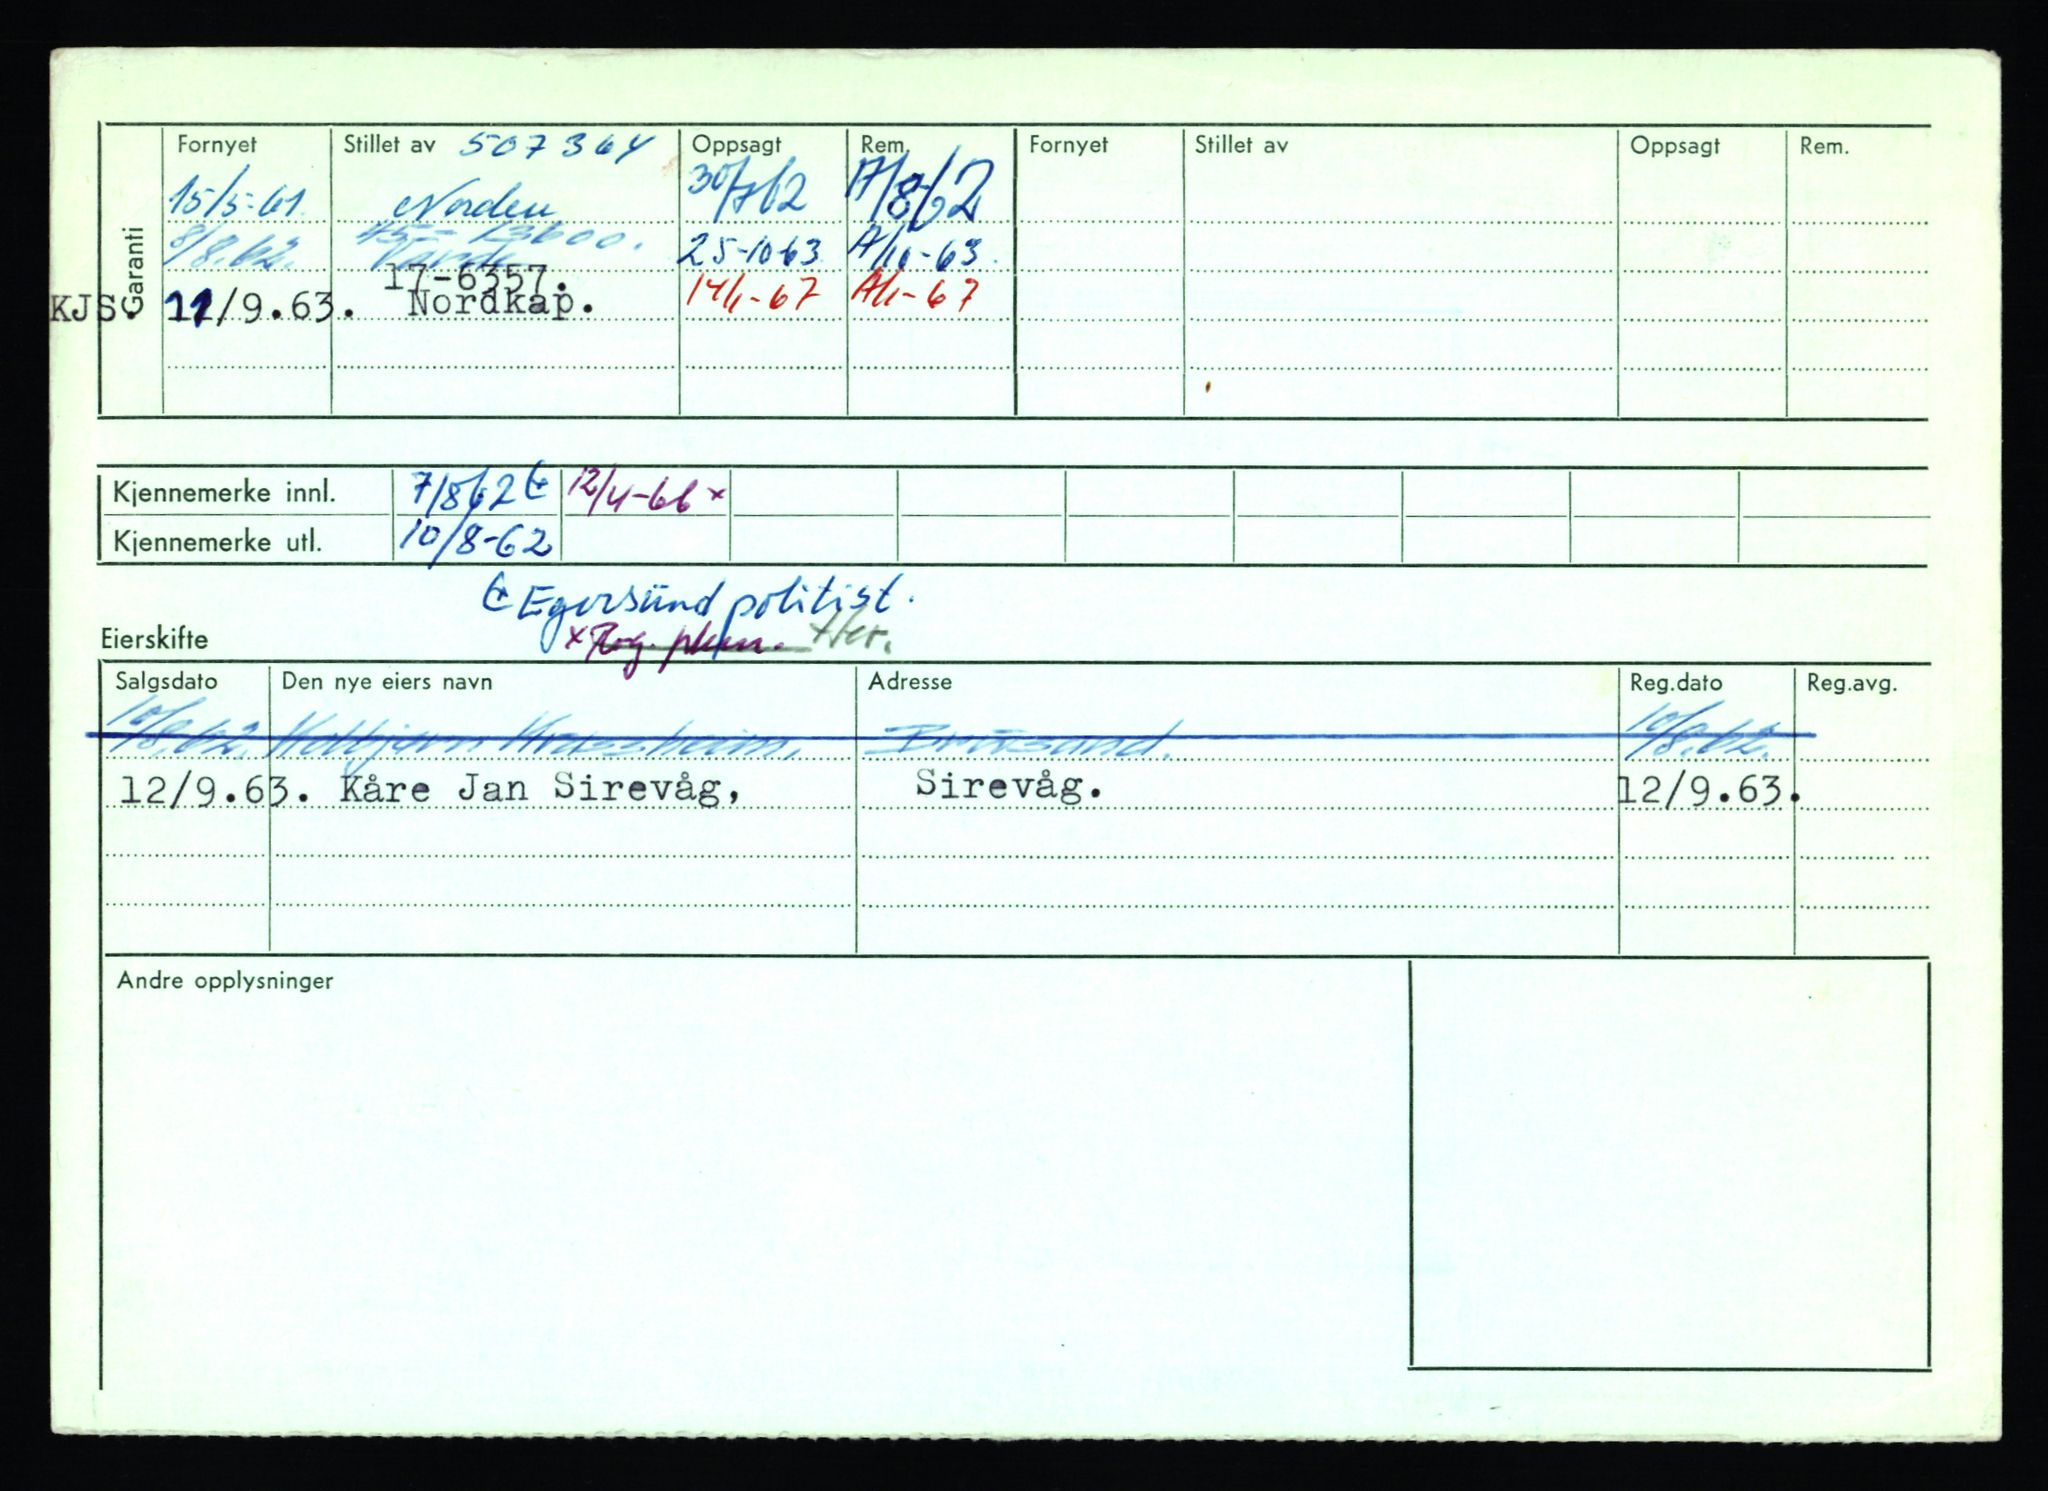 Fornyet Stillet av 507364 Oppsagt Rem. Fornyet Stillet av Oppsagt Rem.
Garanti
15/5-61. Norden 30/7 62 A/8/62
8/8.62. 45 - 13600. 25-10-63 A/10-63.
Varde
17-6357.
KJS. 11/9.63. Nordkap. 14/1-67 A/1-67
Kjennemerke innl. 7/8 62 12/4-66 x
Kjennemerke utl. 10/8-62
Egersund politist.
x Rog. Her.
Eierskifte
Salgsdato Den nye eiers navn Adresse Reg.dato Reg.avg.
10/8.62. Brusand. 10/8.62.
12/9.63. Kåre Jan Sirevåg, Sirevåg. 12/9.63.
Andre opplysninger